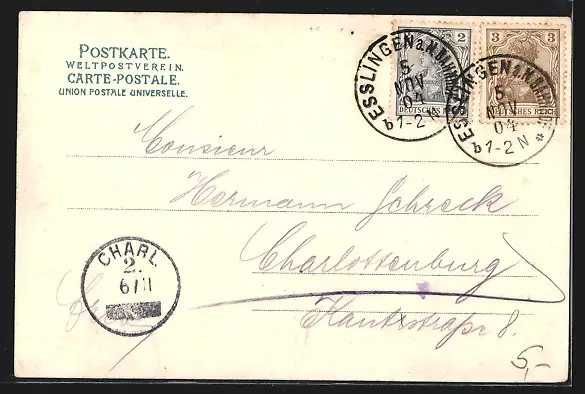 POSTKARTE.
WELTPOSTVEREIN.
CARTE-POSTALE.
UNION POSTALE UNIVERSELLE.
2
3
DEUTSCHES REICH
ESSLINGEN a. N.
5
NOV
04
b 1-2 N
ESSLINGEN a. N.
5
NOV
04
b 1-2 N
Monsieur
Hermann Schreck
CHARL.
2.
6/11
Charlottenburg
Kantstraße 8.
5,-